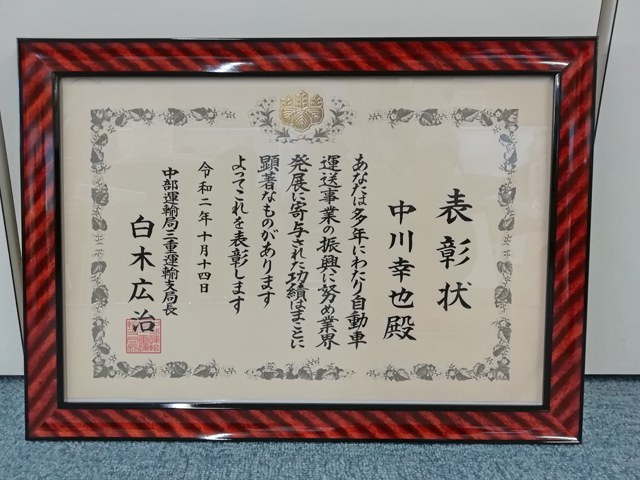 表彰状
中川幸也殿
あなたは多年にわたり自動車
運送事業の振興に努め業界
発展に寄与された功績はまことに
顕著なものがあります
よってこれを表彰します
令和二年十月十四日
中部運輸局三重運輸支局長
白木広治